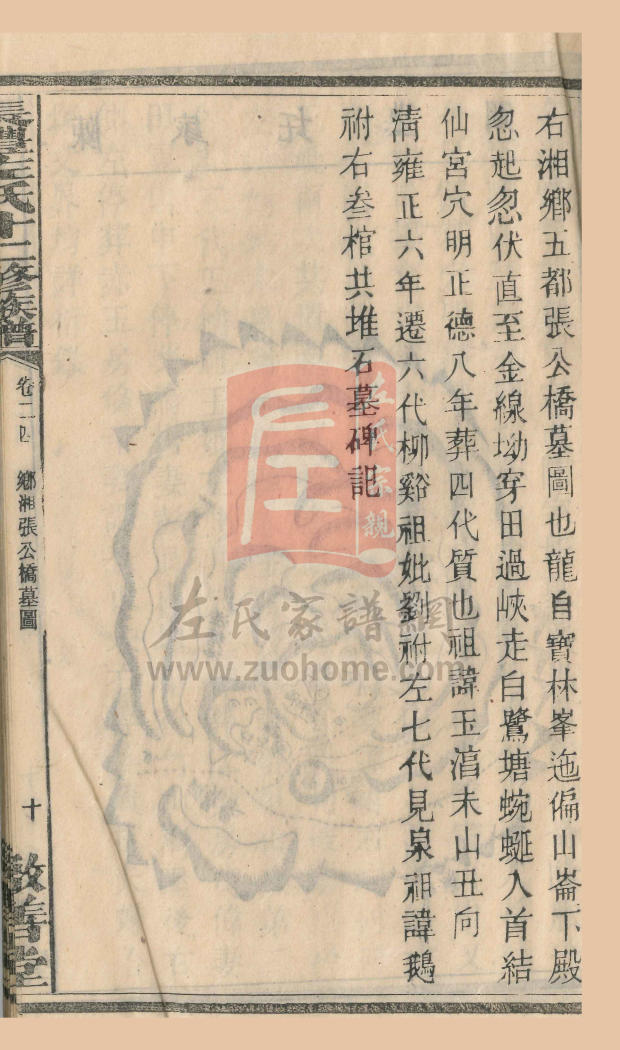 右湘鄉五都張公橋墓圖也龍自寶林峯迤偏山崙下殿
忽起忽伏直至金線坳穿田過峽走白鷺塘蜿蜒入首結
仙宮穴明正德八年葬四代質也祖諱玉湻未山丑向
淸雍正六年遷六代柳谿祖妣劉祔左七代見泉祖諱鵝
祔右叁棺共堆石墓碑記
長豐左氏十二修族譜
卷二四
鄉湘張公橋墓圖
十
敦善堂
左氏宗親
左
左氏家譜網
www.zuohome.com